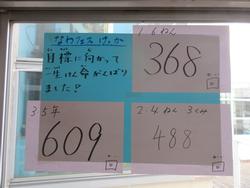 なわフェスけっか
目標に向かって
一生けん命がんばり
ました!
1・6ねん
368
3・5年
609
2・4ねん 3くみ
488